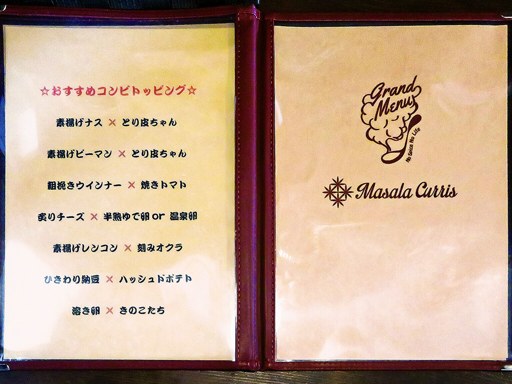 ☆おすすめコンビトッピング☆
素揚げナス × とり皮ちゃん
素揚げピーマン × とり皮ちゃん
粗挽きウインナー × 焼きトマト
炙りチーズ × 半熟ゆで卵 or 温泉卵
素揚げレンコン × 刻みオクラ
ひきわり納豆 × ハッシュドポテト
溶き卵 × きのこたち
Grand
Menu
No Spice No Life
Masala Curris